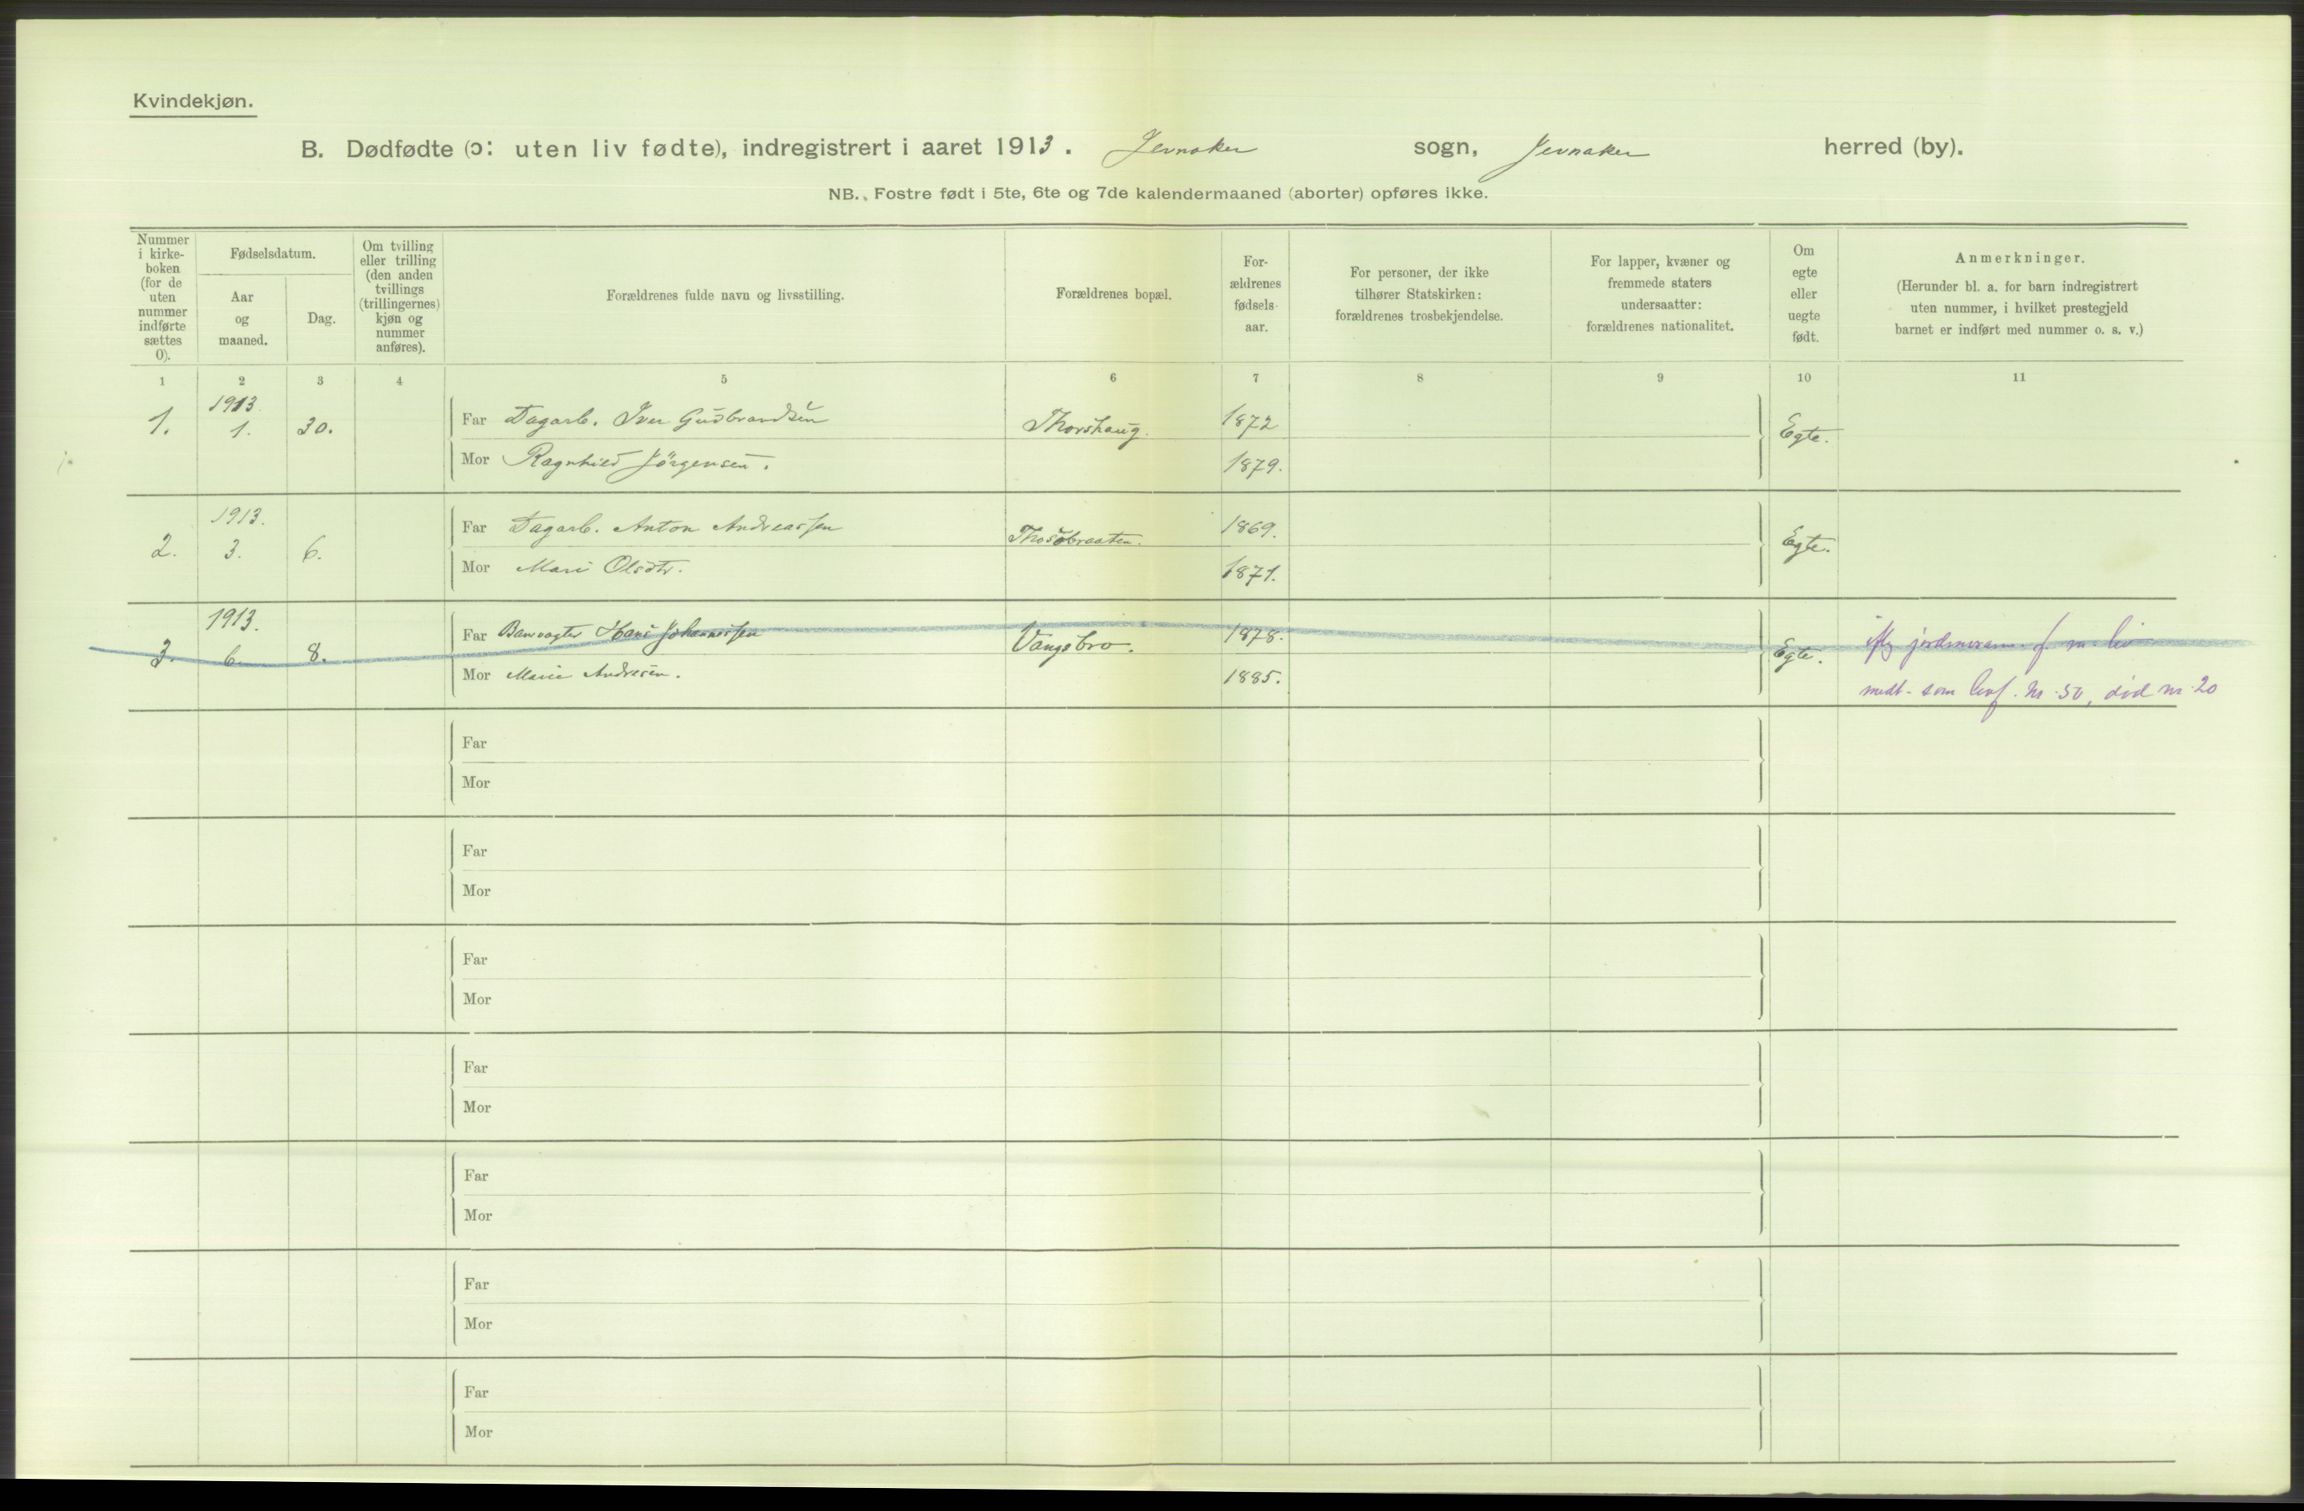 Kvindekjøn.
B. Dødfødte (ɔ: uten liv fødte), indregistrert i aaret 1913. Jevnaker sogn, Jevnaker herred (by).
NB. Fostre født i 5te, 6te og 7de kalendermaaned (aborter) opføres ikke.
Nummer
i kirke-
boken
(for de
uten
nummer
indførte
sættes
0).
Fødselsdatum.
Aar
og
maaned.
Dag.
Om tvilling
eller trilling
(den anden
tvillings
(trillingernes)
kjøn og
nummer
anføres).
Forældrenes fulde navn og livsstilling.
Forældrenes bopæl.
For-
ældrenes
fødsels-
aar.
For personer, der ikke
tilhører Statskirken:
forældrenes trosbekjendelse.
For lapper, kvæner og
fremmede staters
undersaatter:
forældrenes nationalitet.
Om
egte
eller
uegte
født.
Anmerkninger.
(Herunder bl. a. for barn indregistrert
uten nummer, i hvilket prestegjeld
barnet er indført med nummer o. s. v.)
1 2 3 4 5 6 7 8 9 10 11
1. 1913. 1. 30. Far Dagarb. Iver Gudbrandsen Thorshaug. 1872 Egte.
Mor Ragnhild Jørgensen. 1879.
2. 1913. 3. 6. Far Dagarb. Anton Andreassen 1869. Egte.
Mor Mari Olsdtr. 1871.
3. 1913. 6. 8. Far Banvogter Hans Johannessen Vangsbro. 1878. Egte. jordmoran. f. m. liv
Mor Marie Andresen. 1885. medt. som levf. nr. 50, død nr. 20
Far
Mor
Far
Mor
Far
Mor
Far
Mor
Far
Mor
Far
Mor
Far
Mor